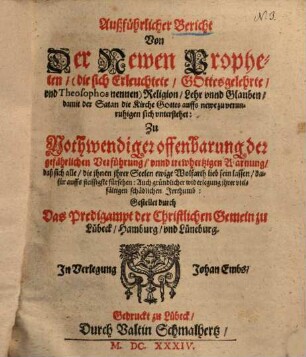 N 9.
Außführlicher Bericht
Von
Der Newen Prophe-
ten / (die sich Erleuchtete / GOttesgelehrte /
vnd Theosophos nennen) Religion / Lehr vnnd Glauben /
damit der Satan die Kirche Gottes auffs newe zu verun-
ruhigen sich unterstehet:
Zu
Nothwendiger offenbarung der
gefährlichen Verführung / vnnd trewhertzigen Warnung /
daß sich alle / die ihnen ihrer Seelen ewige Wolfarth lieb sein lassen / da-
für auffs fleissigste fürsehen: Auch gründlicher widerlegung ihrer viel-
fältigen schädlichen Irrthumb:
Gestellet durch
Das Predigampt der Christlichen Gemein zu
Lübeck / Hamburg / vnd Lüneburg.
In Verlegung Johan Embs /
Gedruckt zu Lübeck /
Durch Valtin Schmalhertz /
M. DC. XXXIV.